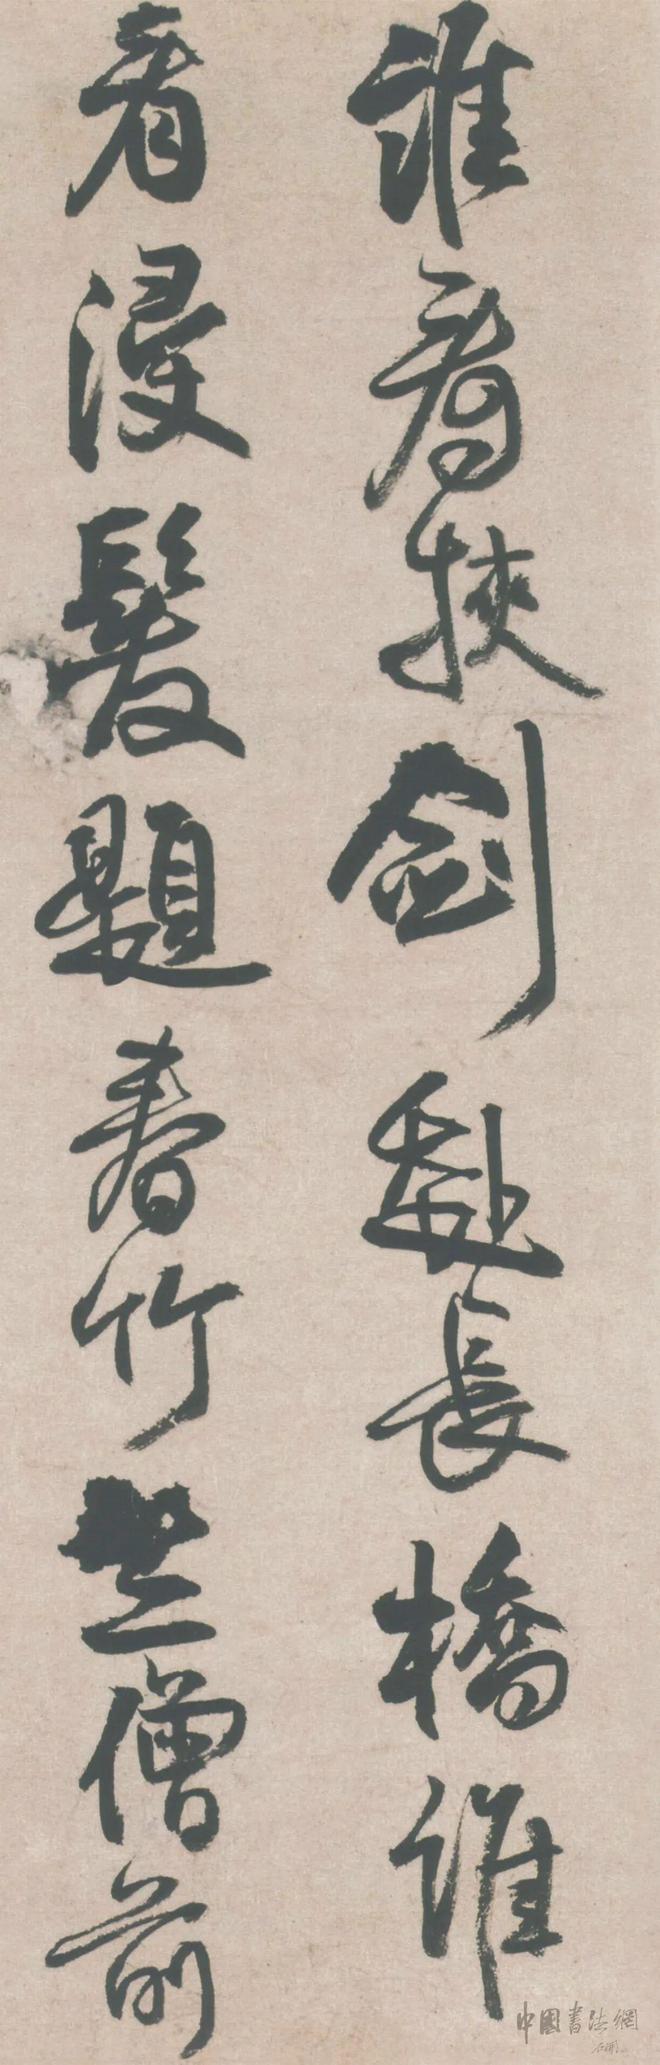 誰看挾劍赴長橋誰
看浸髮題春竹竺僧前
中國書法網